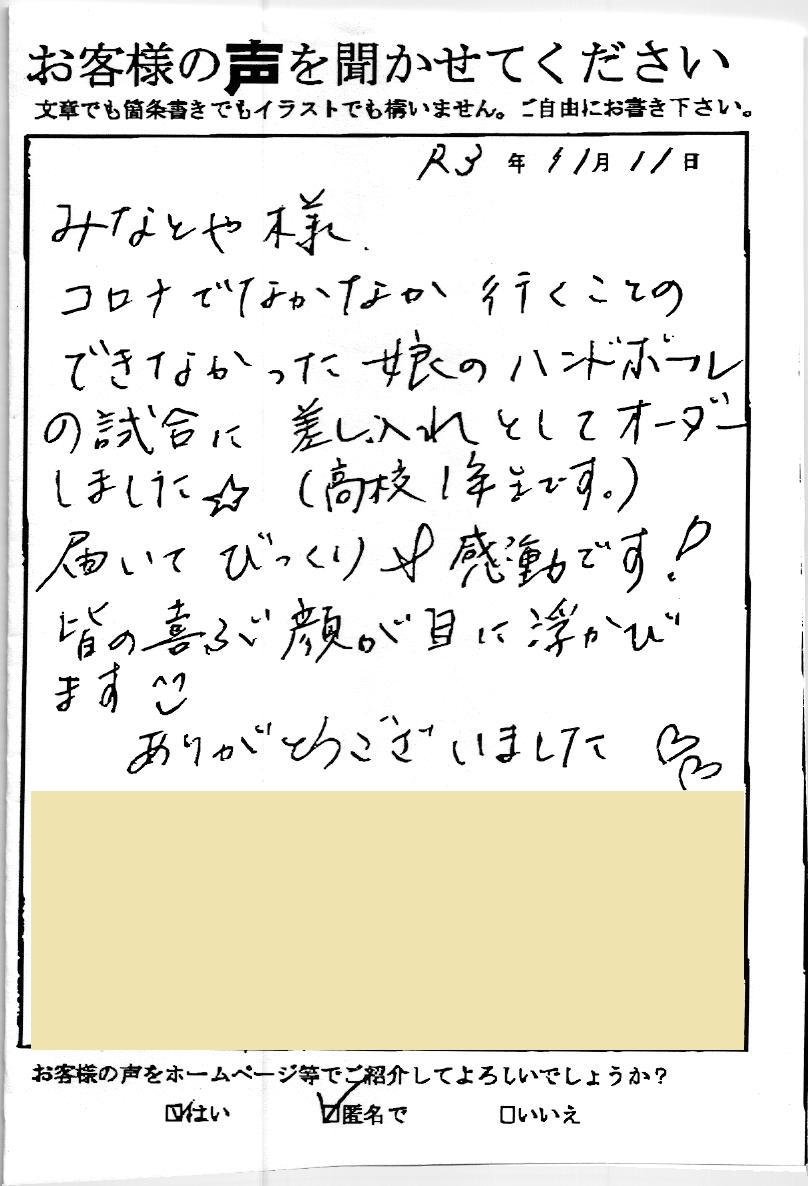 お客様の声を聞かせてください
文章でも箇条書きでもイラストでも構いません。ご自由にお書き下さい。
R3年11月11日
みなとや様
コロナでなかなか行くことの
できなかった娘のハンドボール
の試合に差し入れとしてオーダー
しました☆(高校1年生です。)
届いてびっくり 感動です!
皆の喜ぶ顔が目に浮かび
ます
ありがとうございました
お客様の声をホームページ等でご紹介してよろしいでしょうか?
☑はい ☑匿名で □いいえ